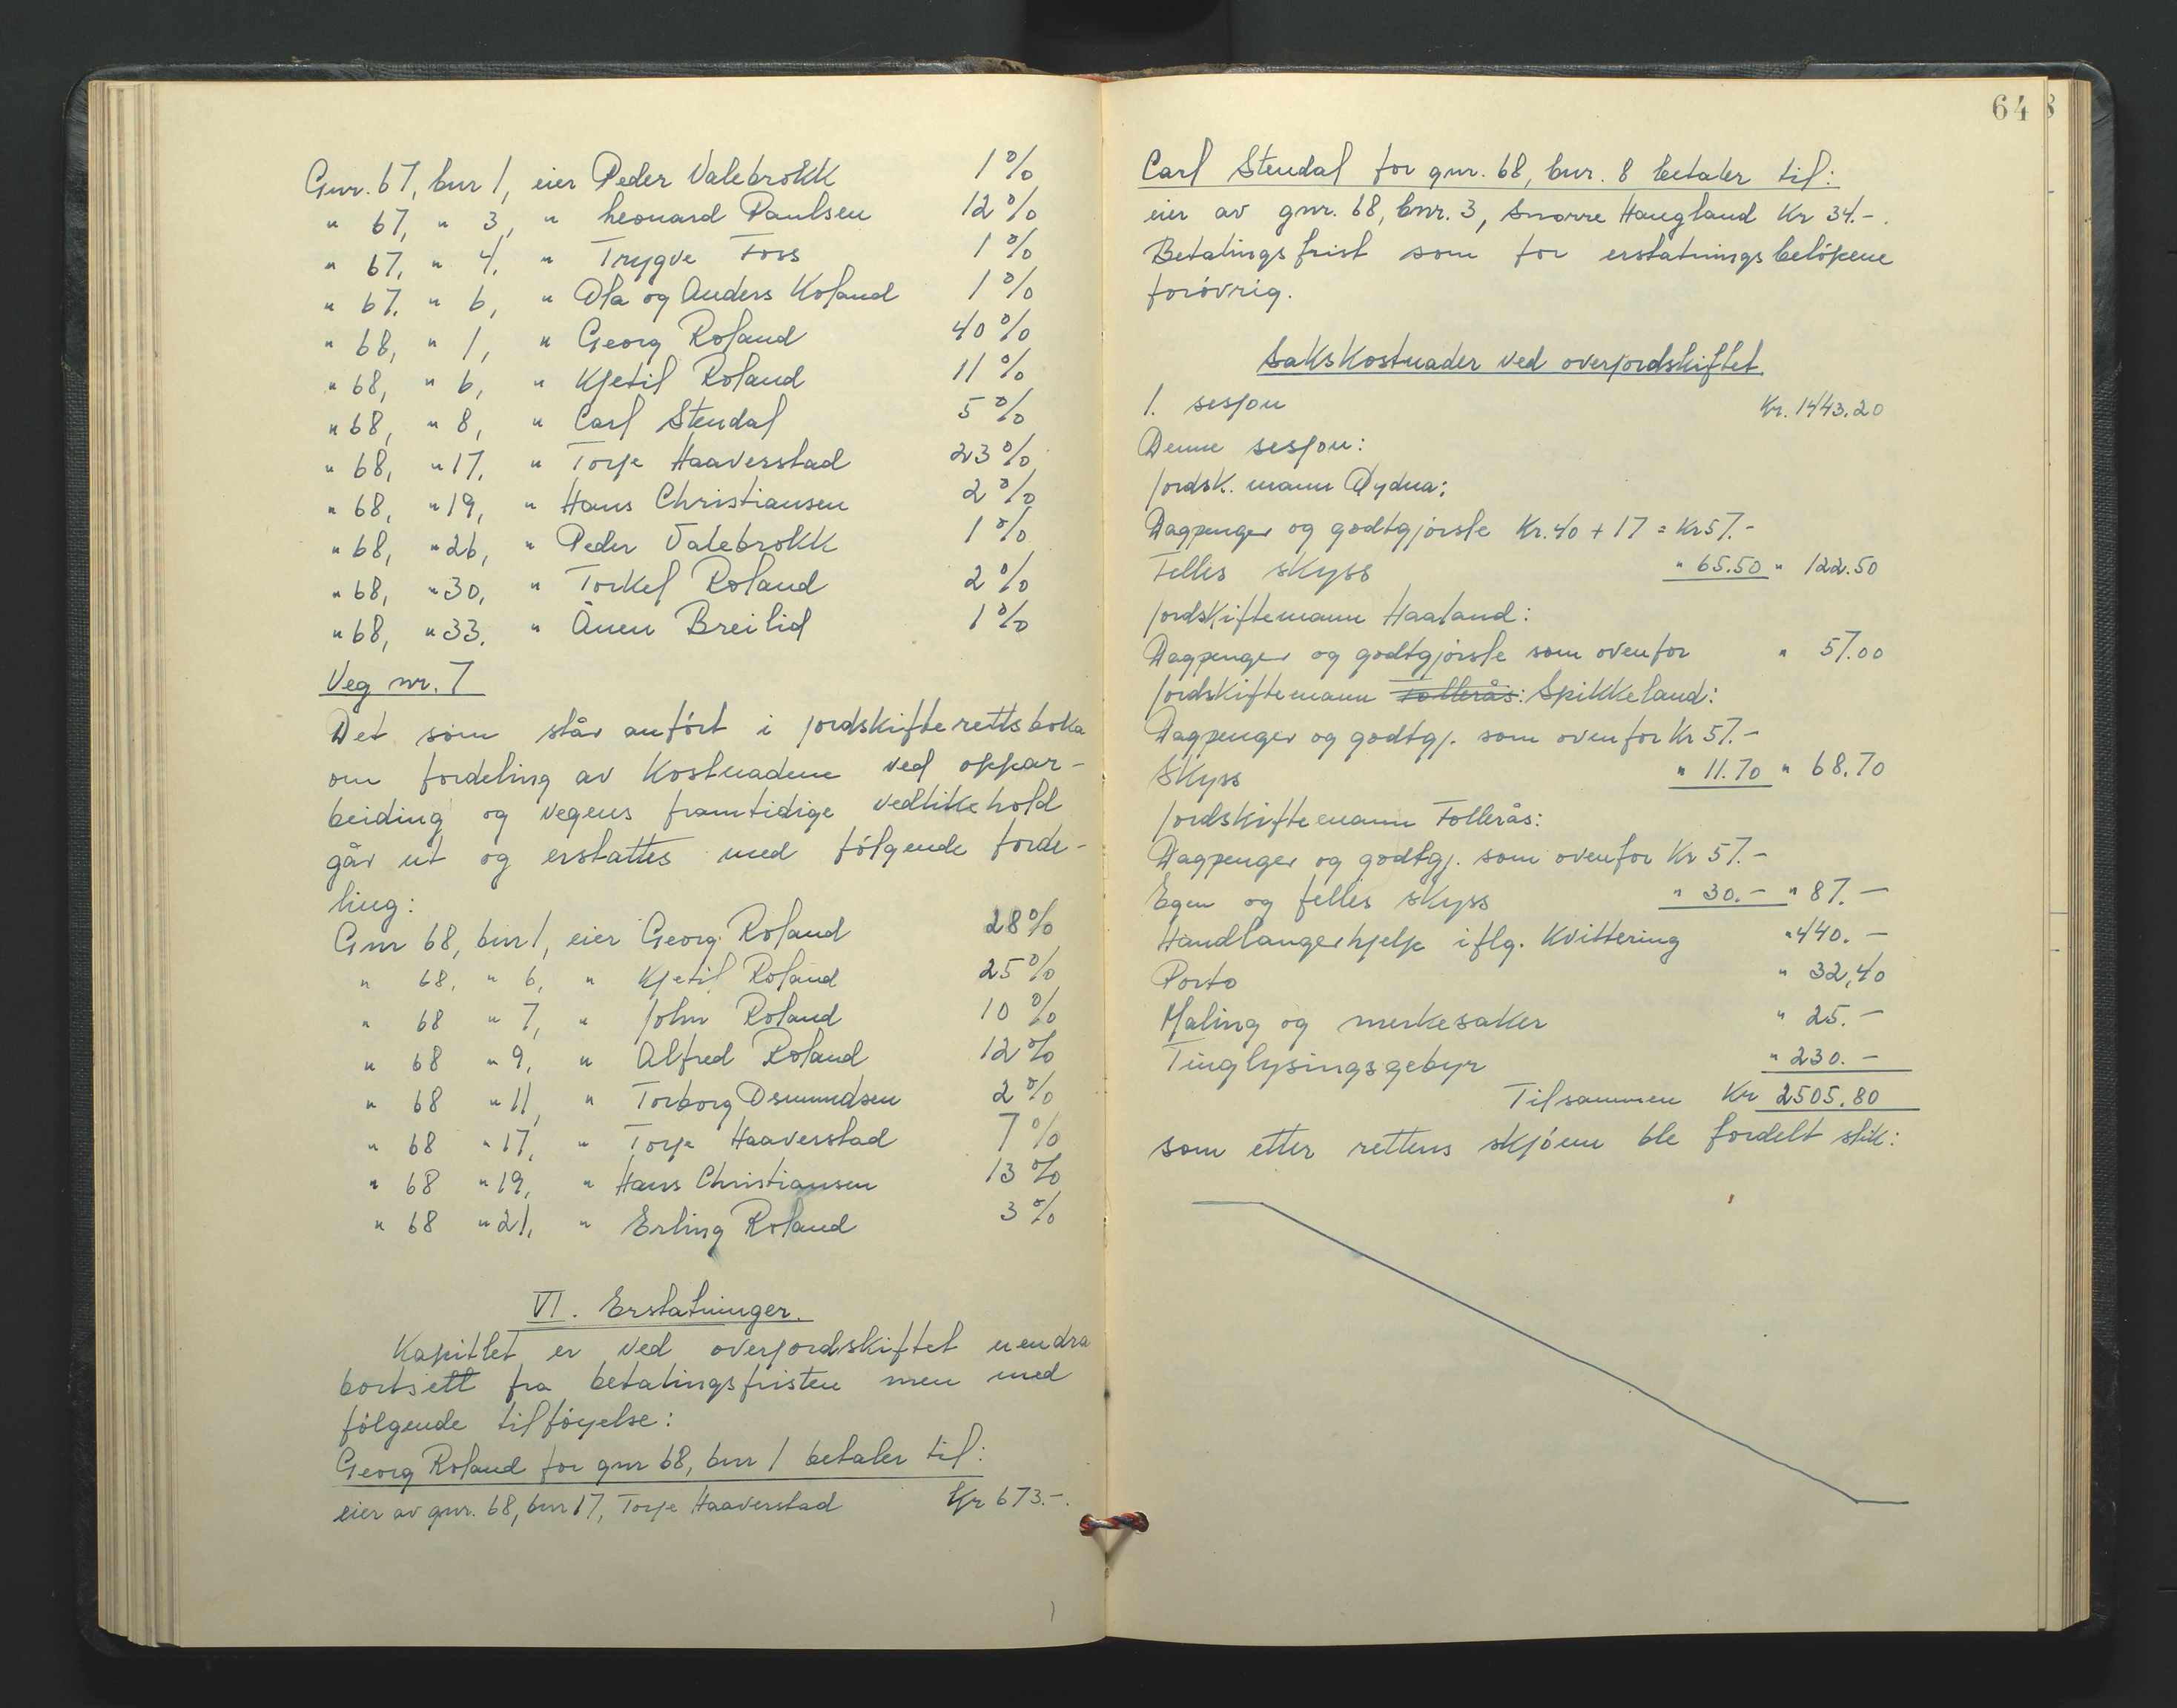 Gnr. 67, bnr 1, eier Peder Valebrokk 1%
" 67, " 3, " Leonard Paulsen 12%
" 67, " 4, " Trygve Foss 1%
" 67, " 6, " Ola og Anders Roland 1%
" 68, " 1, " Georg Roland 40%
" 68, " 6, " Kjetil Roland 11%
" 68, " 8, " Carl Stendal 5%
" 68, " 17, " Torje Haaverstad 23%
" 68, " 19, " Hans Christiansen 2%
" 68, " 26, " Peder Valebrokk 1%
" 68, " 30, " Torkel Roland 2%
" 68, " 33, " Ånen Breilid 1%
Veg nr. 7
Det som står anført i jordskifterettsboka
om fordeling av kostnadene ved oppar-
beiding og vegens framtidige vedlikehold
går ut og erstattes med følgende forde-
ling:
Gnr 68, bnr 1, eier Georg Roland 28%
" 68, " 6, " Kjetil Roland 25%
" 68 " 7, " John Roland 10%
" 68 " 9, " Alfred Roland 12%
" 68 " 11, " Torborg Osmundsen 2%
" 68 " 17, " Torje Haaverstad 7%
" 68 " 19, " Hans Christiansen 13%
" 68 " 21, " Erling Roland 3%
VI. Erstatninger.
Kapitlet er ved overjordskiftet uendra
bortsett fra betalingsfristen men med
følgende tilføyelse:
Georg Roland for gnr 68, bnr 1 betaler til:
eier av gnr. 68, bnr 17, Torje Haaverstad Kr 673.-.
64
Carl Stendal for gnr. 68, bnr. 8 betaler til:
eier av gnr. 68, bnr. 3, Snorre Haugland Kr 34.-.
Betalingsfrist som for erstatningsbeløpene
forøvrig.
Sakskostnader ved overjordskiftet.
1. sesjon Kr. 1443.20
Denne sesjon:
Jordsk. mann Dydna:
Dagpenger og godtgjørsle Kr. 40 + 17 = Kr 57.-
Felles skyss " 65.50 " 122.50
Jordskiftemann Haaland:
Dagpenger og godtgjørsle som ovenfor " 57.00
Jordskiftemann Follerås: Spikkeland:
Dagpenger og godtgj. som ovenfor Kr 57.-
Skyss " 11.70 " 68.70
Jordskiftemann Follerås:
Dagpenger og godtgj. som ovenfor Kr 57.-
Egen og felles skyss " 30.- " 87.-
Håndlangerhjelp iflg. kvittering " 440.-
Porto " 32,40
Maling og merkesaker " 25.-
Tinglysingsgebyr " 230.-
Tilsammen Kr 2505.80
som etter rettens skjønn ble fordelt slik: